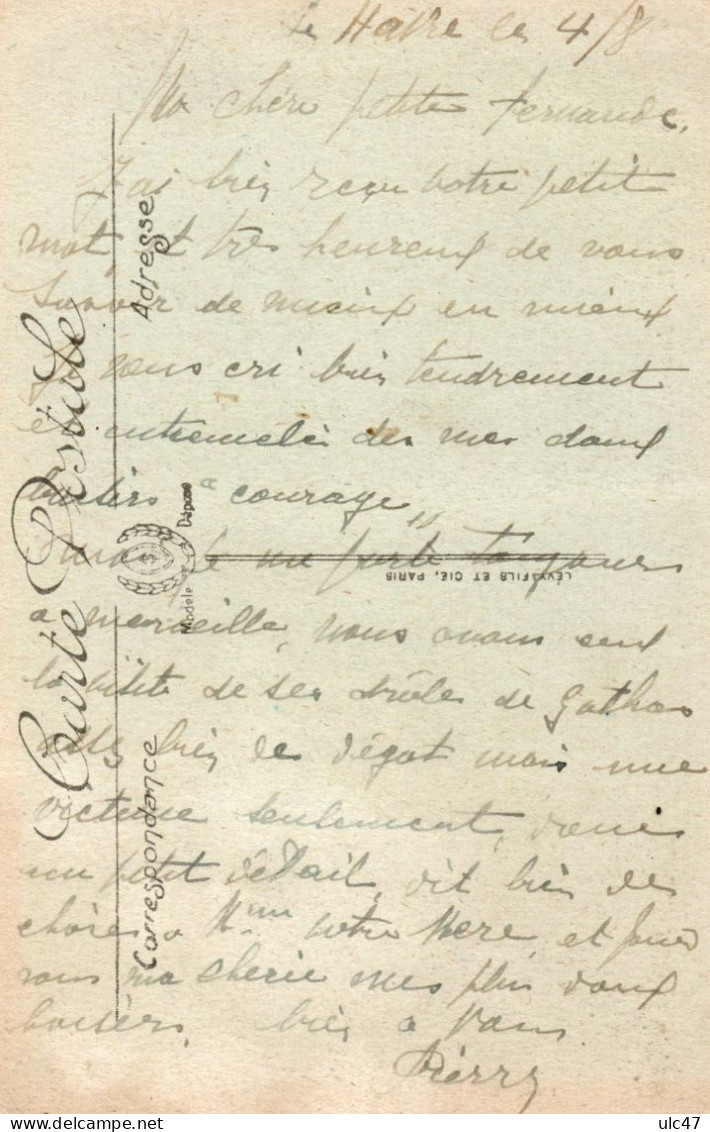 le Havre le 4/8
Ma chère petite Fernande,
J'ai bien reçu votre petit
mot, et très heureux de vous
savoir de mieux en mieux
Je vous cri bien tendrement
et entremelé des mes doux
baisers "courage"
moi je me porte toujours
a merveille, nous avons eu
la visite de ses drôle de Gothas
bien de dégat mais une
victime seulement,
un petit détail, dit bien des
choses a Mme votre Mere, et pour
vous ma cherie mes plus doux
baisers, bien a vous
Pierre
Carte Postale
Correspondance
Adresse
Modèle Déposé
LÉVY FILS ET CIE, PARIS
ulc47